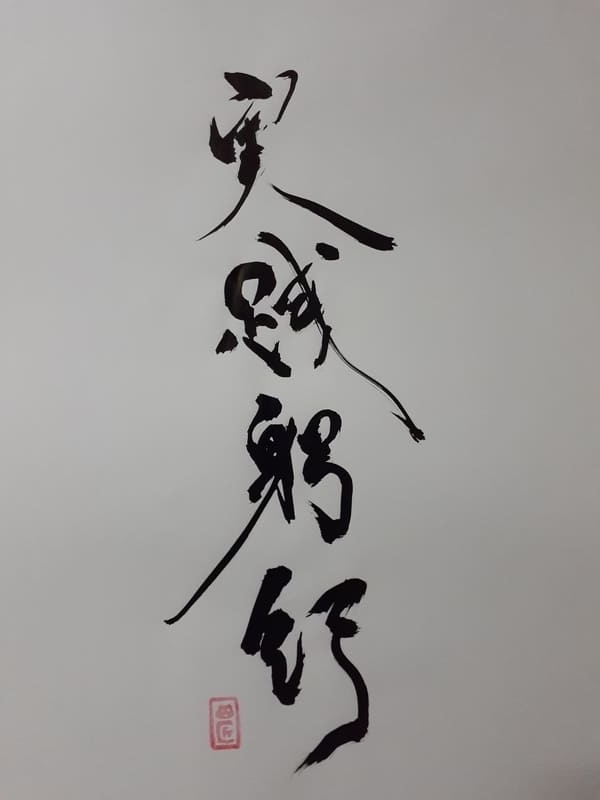 実践躬行